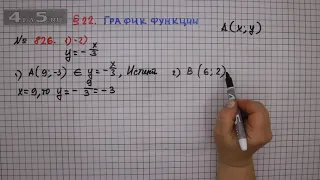 § 22. ГРАФИК ФУНКЦИИ
№ 826. 1)-2)
A(x; y)
y = - x/3
1) A(9; -3) ∈ y = - x/3, Истина
2) B(6; 2)
x = 9, то y = - 9/3 = -3